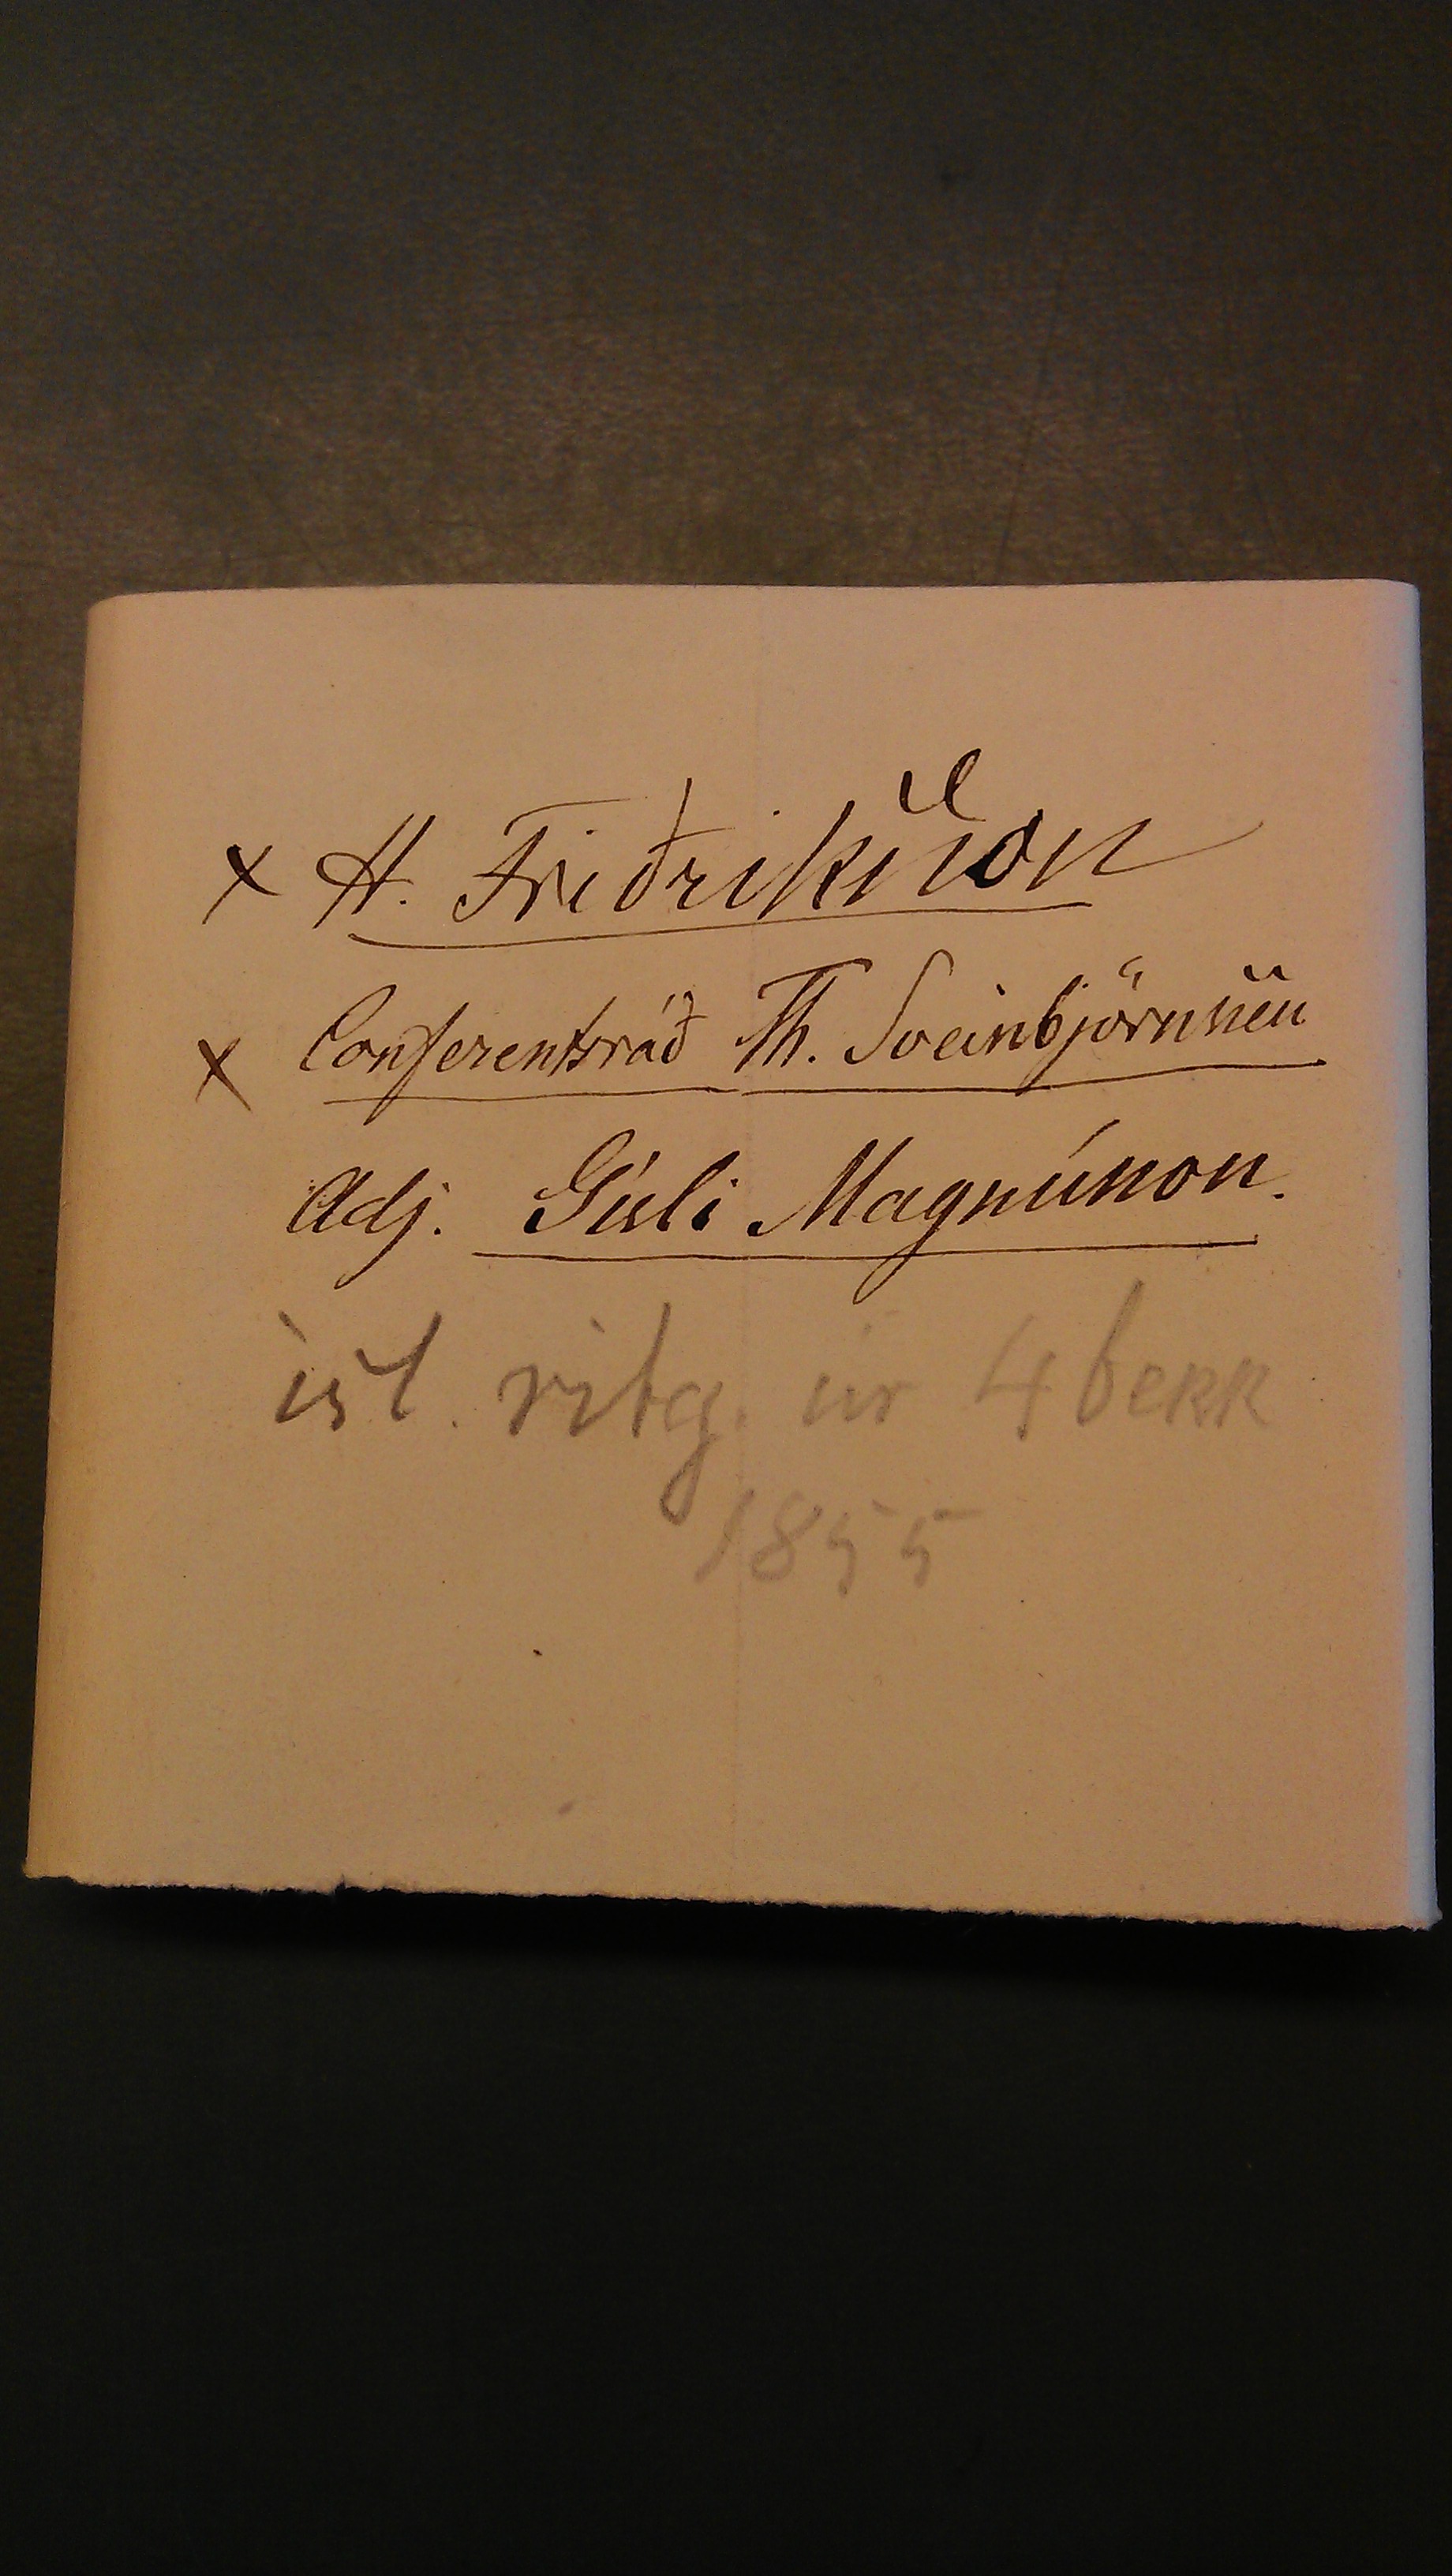 x H. Friðriksson
x Conferentsráð Th. Sveinbjörnssen
Adj. Gísli Magnússon.
ísl. ritg. úr 4 bekk
1855